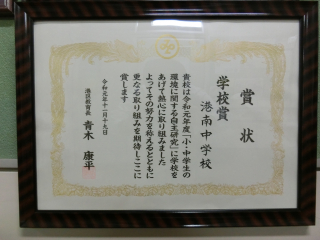 賞状
学校賞
港南中学校
貴校は令和元年度「小・中学生の
環境に関する自主研究」に学校を
あげて熱心に取り組みました
よってその努力を称えるとともに
更なる取り組みを期待しここに
賞します
令和元年十一月十九日
港区教育長
青木 康平